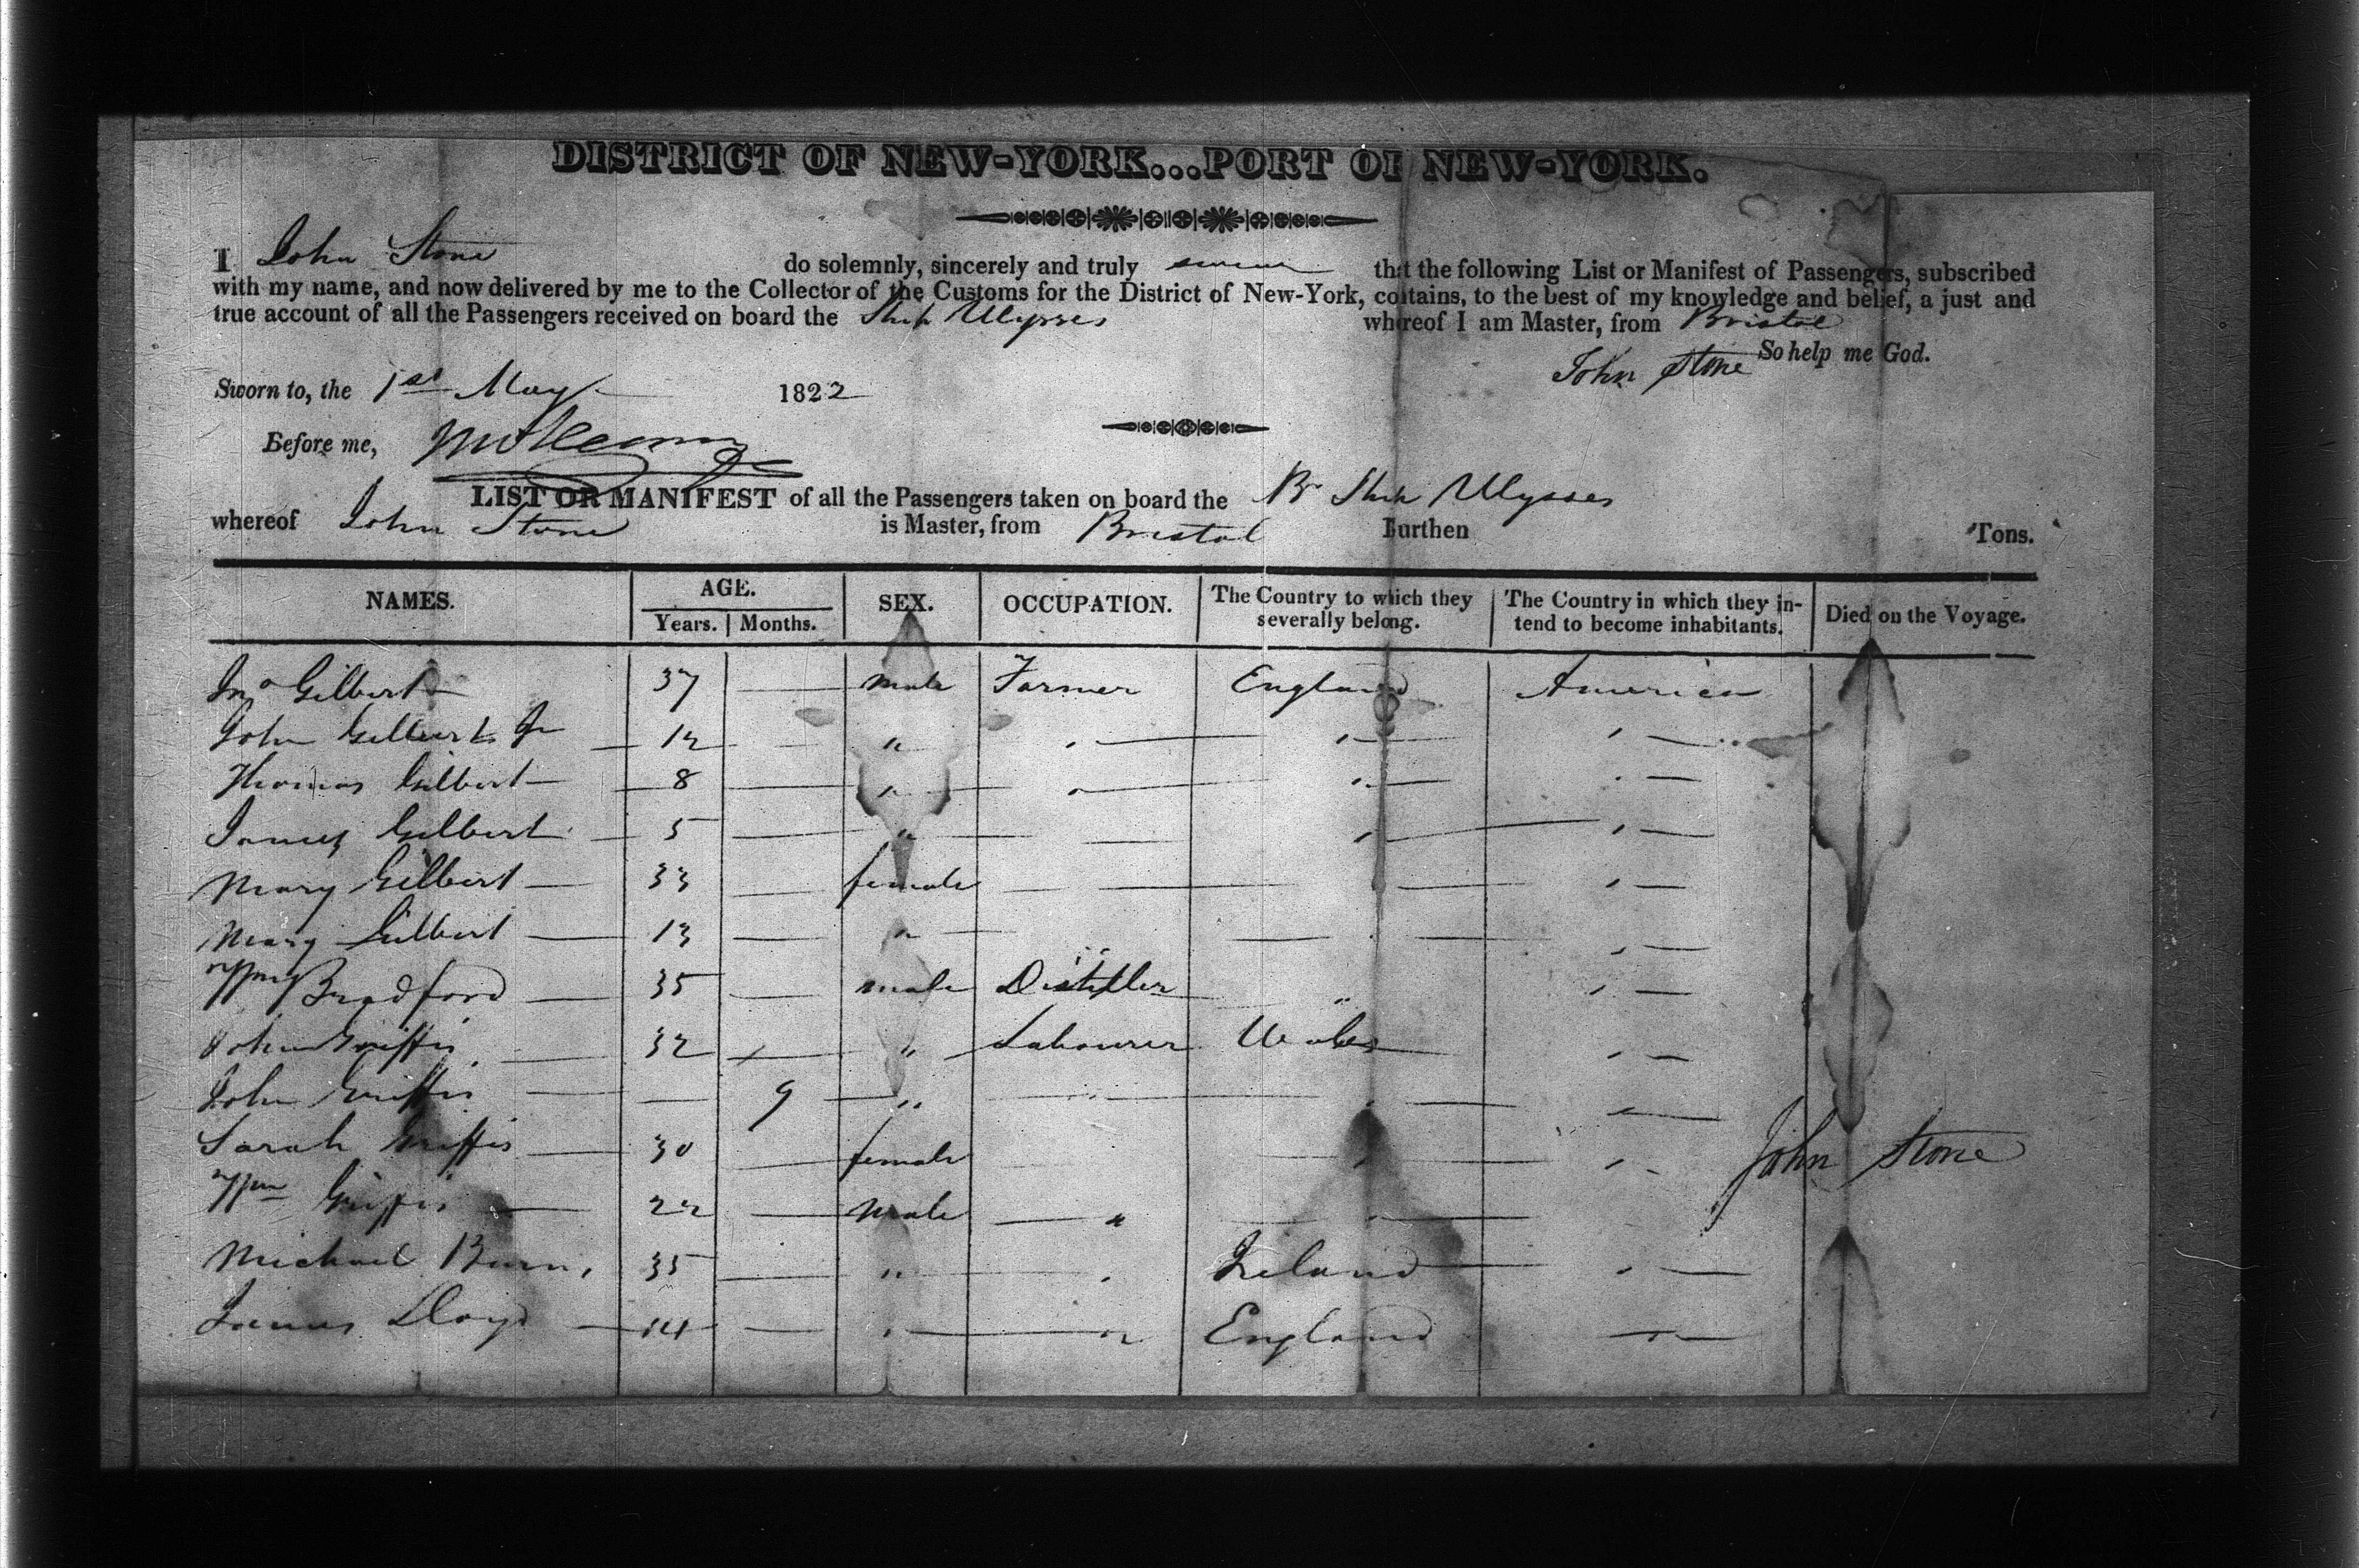 DISTRICT OF NEW-YORK...PORT OF NEW-YORK.
I John Stone do solemnly, sincerely and truly swear that the following List or Manifest of Passengers, subscribed
with my name, and now delivered by me to the Collector of the Customs for the District of New-York, contains, to the best of my knowledge and belief, a just and
true account of all the Passengers received on board the Ship Ulysses whereof I am Master, from Bristol
So help me God.
John Stone
Sworn to, the 1st May 1822
Before me,
LIST OR MANIFEST of all the Passengers taken on board the Br Ship Ulysses
whereof John Stone is Master, from Bristol Burthen Tons.
NAMES. AGE. SEX. OCCUPATION. The Country to which they severally belong. The Country in which they intend to become inhabitants. Died on the Voyage.
Years. Months.
Jno Gilbert 37 male Farmer England America
John Gilbert Jr 12 " " " "
Thomas Gilbert 8 " " " "
James Gilbert 5 " " "
Mary Gilbert 33 female "
Mary Gilbert 13 " "
Wm Bradford 35 male Distiller " "
John Griffis 32 " Labourer Wales "
John Griffis 9 " " "
Sarah Griffis 30 female " "
John Stone
Wm Griffis 22 male " "
Michael Burn, 35 " " Ireland "
James Lloyd 14 " " England "